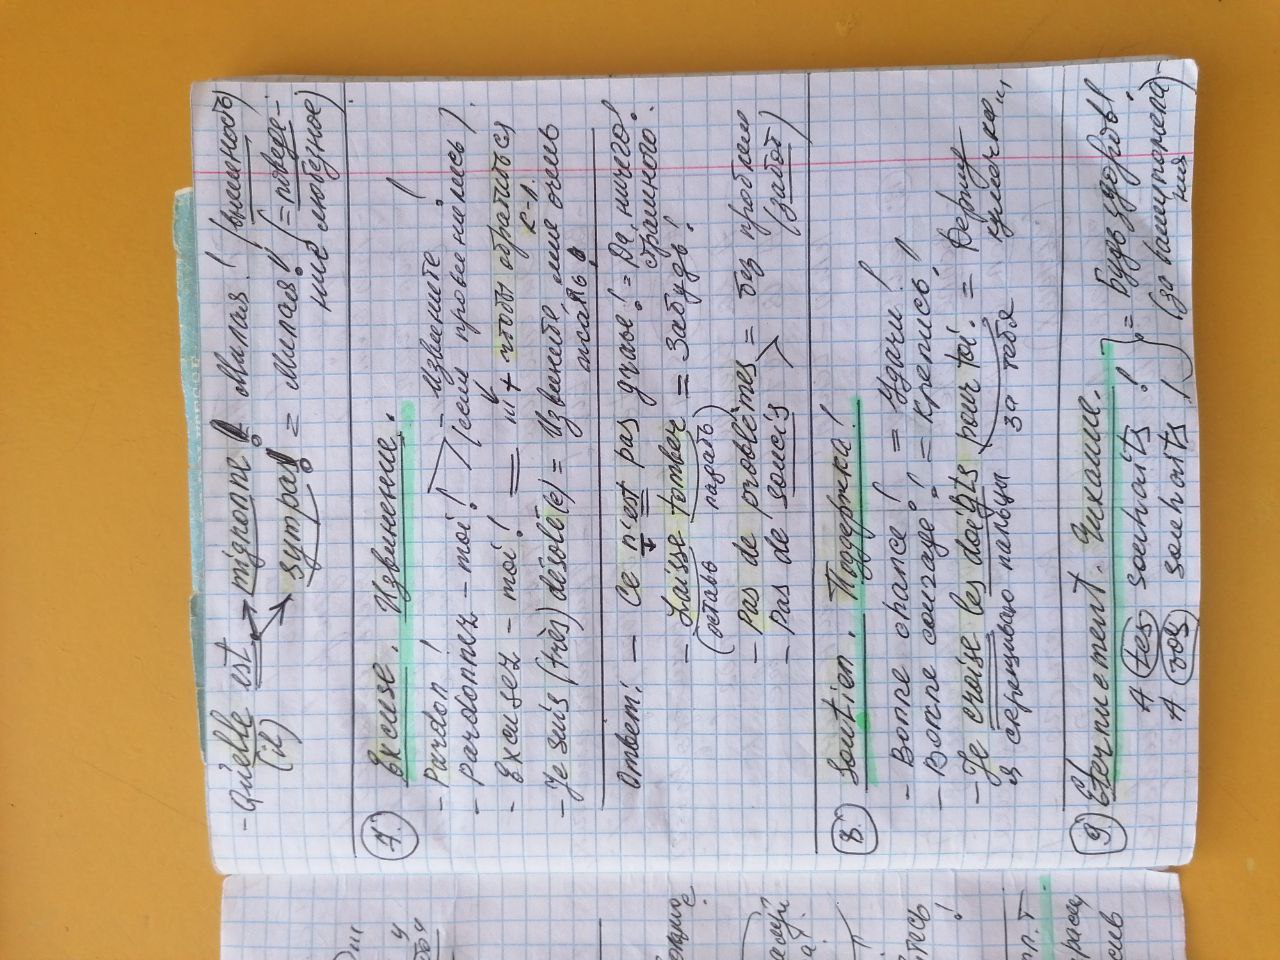 - Qu'elle est → mignonne! Милая! (внешность)
(il) → sympa! = Милая! (= поведе-
ние любезное)
7. Excuse. Извинение.
- Pardon!
- Pardonnez-moi! - Извините!
(если провинились)
- Excusez-moi! = + чтобы обратиться
к-л.
- Je suis (très) désolé(e) = Извините, мне очень
жаль.
Ответ: - Ce n'est pas grave! = Да, ничего!
страшного.
- Laisse tomber = Забудь!
(оставь падать)
- Pas de problèmes = без проблем
- Pas de soucis (забот)
8. Soutien. Поддержка!
- Bonne chance! = Удачи!
- Bonne courage! = Крепись!
- Je croise les doigts pour toi. = Держу
кулачки
я скрещиваю пальцы за тебя
9) Éternuement. Чихание.
A tes souhaits! } = Будь здоров!
A vos souhaits! (за